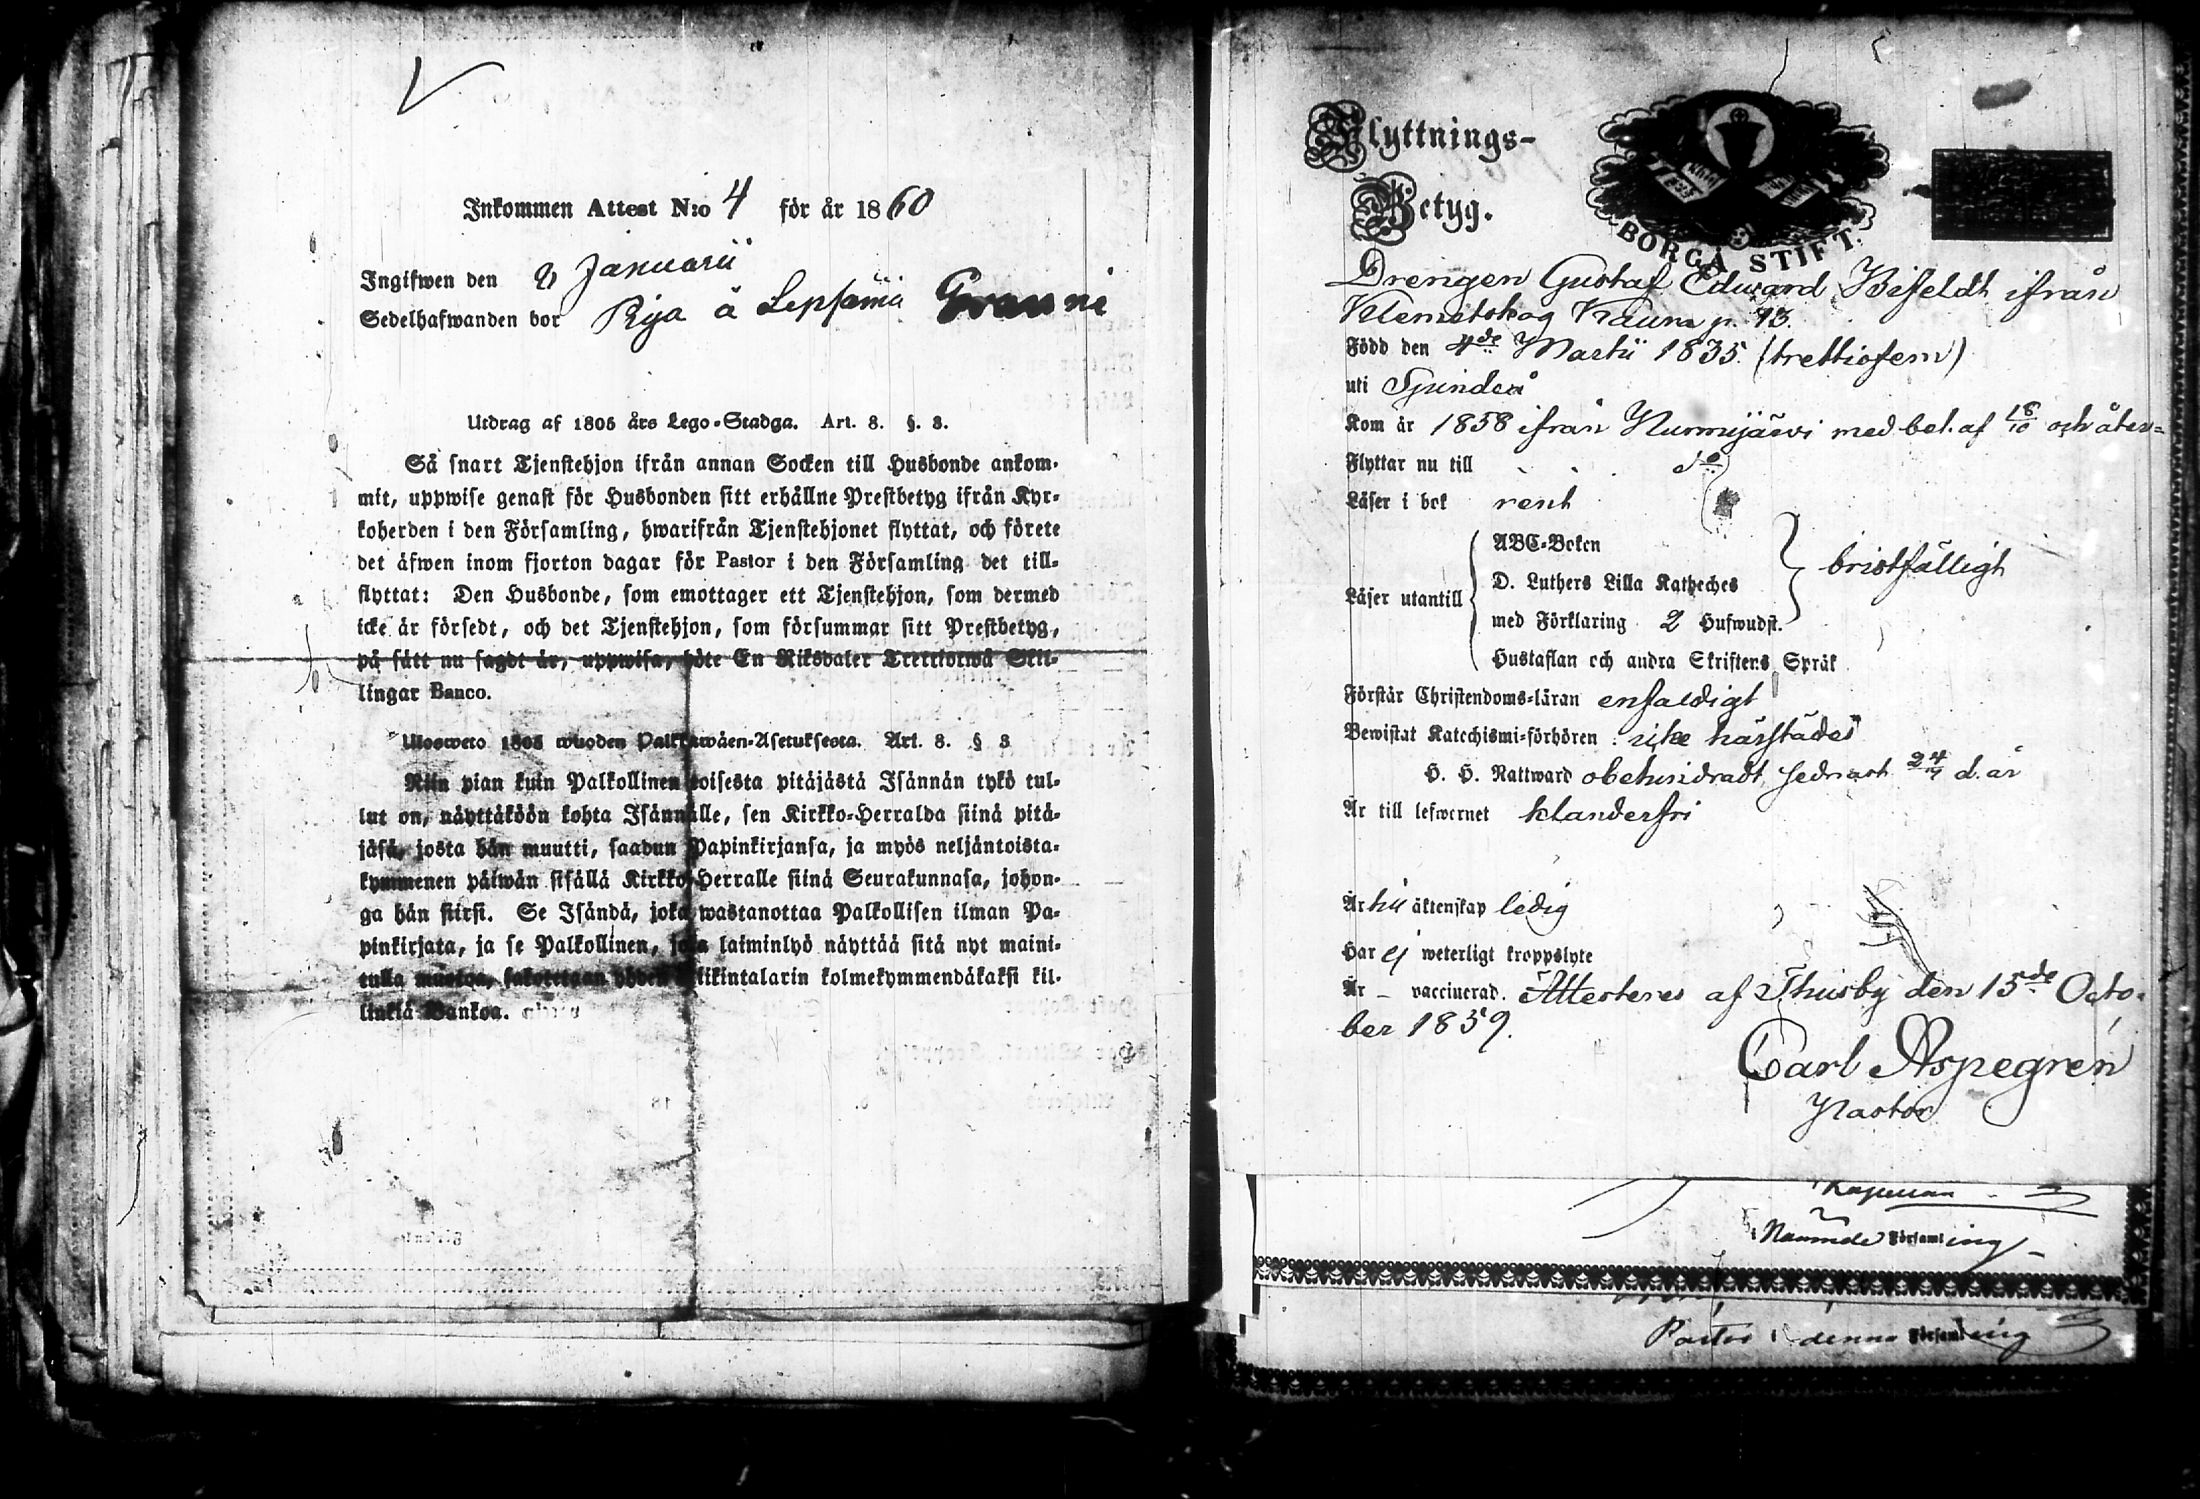 Inkommen Attest N:o 4 för år 1860
Ingifwen den 2 Januarii
Sedelhafwanden bor Rija å Lepsämä Granni
Utdrag af 1805 års Lego-Stadga. Art. 8. §. 3.
Så snart Tjenstehjon ifrån annan Socken till Husbonde ankom-
mit, uppwise genast för Husbonden sitt erhållne Prestbetyg ifrån Kyr-
koherden i den Församling, hwarifrån Tjenstehjonet flyttat, och förete
det äfwen inom fjorton dagar för Pastor i den Församling det till-
flyttat: Den Husbonde, som emottager ett Tjenstehjon, som dermed
icke är försedt, och det Tjenstehjon, som försummar sitt Prestbetyg,
på sätt nu sagdt är, uppwisa, böte En Riksdaler Trettiotwå Skil-
lingar Banco.
Ulosweto 1805 wuoden Palkkawäen-Asetuksesta. Art. 8. § 3
Niin pian kuin Palkollinen toisesta pitäjästä Isännän tykö tul-
lut on, näyttäköön kohta Isännälle, sen Kirkko-Herralda siinä pitä-
jäsä, josta hän muutti, saadun Papinkirjansa, ja myös neljäntoista-
kymmenen päiwän sisällä Kirkko-Herralle siinä Seurakunnasa, johon-
ga hän siirsi. Se Isändä, joka wastanottaa Palkollisen ilman Pa-
pinkirjata, ja se Palkollinen, joka laiminlyö näyttää sitä nyt maini-
tulla muotoa, sakotetaan yhden Rikintalarin kolmekymmendäkaksi kil-
linkiä Bankoa.
Flyttnings-
Betyg.
BORGÅ STIFT.
Drengen Gustaf Edward Bifeldt ifrån
Klemetskog Kauna p. 13.
Född den 4de Martii 1835. (trettiofem)
uti Sjundeå
Kom år 1858 ifrån Nurmijärvi med bet. af 18/10 och åter-
Flyttar nu till do
Läser i bok rent
Läser utantill
ABC-Boken
D. Luthers Lilla Katheches
med Förklaring 2 Hufwudst.
Hustaflan och andra Skriftens Språk
bristfälligt
Förstår Christendoms-läran enfaldigt
Bewistat Katechismi-förhören: icke härstädes
H. H. Nattward obehindradt, sednast 24/4 d. år
Är till lefwernet klanderfri
Är till äktenskap ledig
Har ej weterligt kroppslyte
Är – vaccinerad. Attesteres af Thusby den 15de Octo-
ber 1859.
Carl Aspegren
Pastor
Kapellan
Nämnde Församling
Pastor i denna Församling